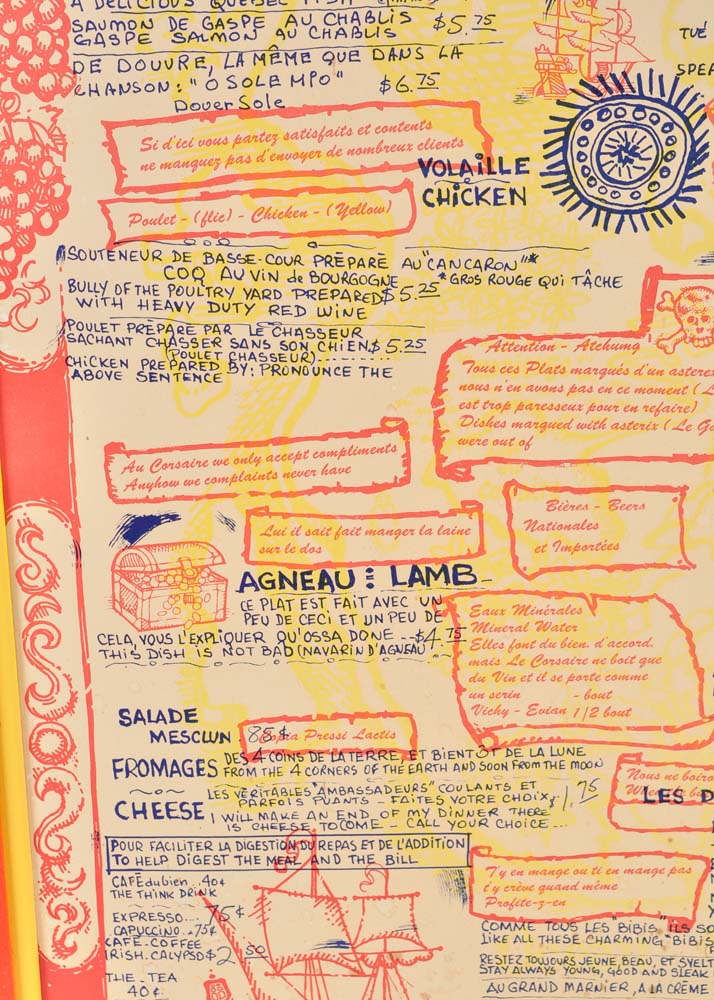 A DELICIOUS QUEBEC FISH
SAUMON DE GASPE AU CHABLIS
GASPE SALMON AU CHABLIS $5.75
DE DOUVRE, LA MÊME QUE DANS LA
CHANSON: "O SOLE MPO" $6.75
Dover Sole
TUÉ
SPEA
Si d'ici vous partez satisfaits et contents
ne manquez pas d'envoyer de nombreux clients
VOLAILLE
CHICKEN
Poulet - (flic) - Chicken - (Yellow)
SOUTENEUR DE BASSE-COUR PRÉPARÉ AU "CANCARON"*
COQ AU VIN de BOURGOGNE *GROS ROUGE QUI TÂCHE
BULLY OF THE POULTRY YARD PREPARED $5.25
WITH HEAVY DUTY RED WINE
POULET PRÉPARÉ PAR LE CHASSEUR
SACHANT CHASSER SANS SON CHIEN $5.25
(POULET CHASSEUR)--------
CHICKEN PREPARED BY: PRONOUNCE THE
ABOVE SENTENCE
Attention - Atchumg
Tous ces Plats marqués d'un asterex
nous n'en avons pas en ce moment (L
est trop paresseux pour en refaire)
Dishes marqued with asterix (Le Ga
were out of
Au Corsaire we only accept compliments
Anyhow we complaints never have
Bières - Beers
Nationales
et Importées
Lui il sait fait manger la laine
sur le dos
AGNEAU : LAMB
CE PLAT EST FAIT AVEC UN
PEU DE CECI ET UN PEU DE
CELA, VOUS L'EXPLIQUER QU'OSSA DONE --$4.75
THIS DISH IS NOT BAD (NAVARIN D'AGNEAU)
Eaux Minérales
Mineral Water
Elles font du bien, d'accord,
mais Le Corsaire ne boit que
du Vin et il se porte comme
un serin - bout
Vichy - Evian 1/2 bout
SALADE
MESCLUN 88¢
Pressi Lactis
FROMAGES DES 4 COINS DE LA TERRE, ET BIENTÔT DE LA LUNE
FROM THE 4 CORNERS OF THE EARTH AND SOON FROM THE MOON
CHEESE LES VÉRITABLES "AMBASSADEURS" COULANTS ET
PARFOIS PUANTS - FAITES VOTRE CHOIX 1.75
I WILL MAKE AN END OF MY DINNER THERE
IS CHEESE TO COME - CALL YOUR CHOICE ---
Nous ne boiro
LES D
POUR FACILITER LA DIGESTION DU REPAS ET DE L'ADDITION
TO HELP DIGEST THE MEAL AND THE BILL
CAFÉ du bien ..40¢
THE THINK DRINK
EXPRESSO.... 75¢
CAPUCCINO..75¢
CAFÉ-COFFEE
IRISH-CALYPSO $2.50
THÉ - TEA
40¢
T'y en mange ou ti en mange pas
t'y crève quand même
Profite-z-en
COMME TOUS LES "BIBIS" ILS SO
LIKE ALL THESE CHARMING "BIBIS
RESTEZ TOUJOURS JEUNE, BEAU, ET SVELT
STAY ALWAYS YOUNG, GOOD AND SLEAK
AU GRAND MARNIER, A LA CRÈME